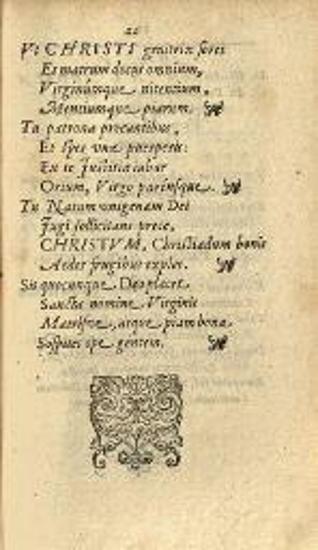 22
Vt CHRISTI genitrix fores
Et matrum decus omnium,
Virginúmque nitentium,
Mentiumque piarum.
Tu patrona precantibus,
Et spes vna
Ex te Justitiæ iubar
Ortum, Virgo parénsque.
Tu Natum unigenam Dei
Jugi sollicitans prece,
CHRISTVM, Christiadum bonis
Aedes frugibus exples.
Sis quocunque Deo placet
Sancta nomine, Virginis
Matrísque, atque piam bona
Sospites ope gentem.